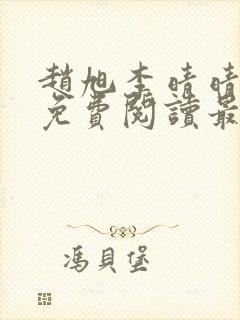 趙旭李晴晴
免費閱讀最
馮貝堡